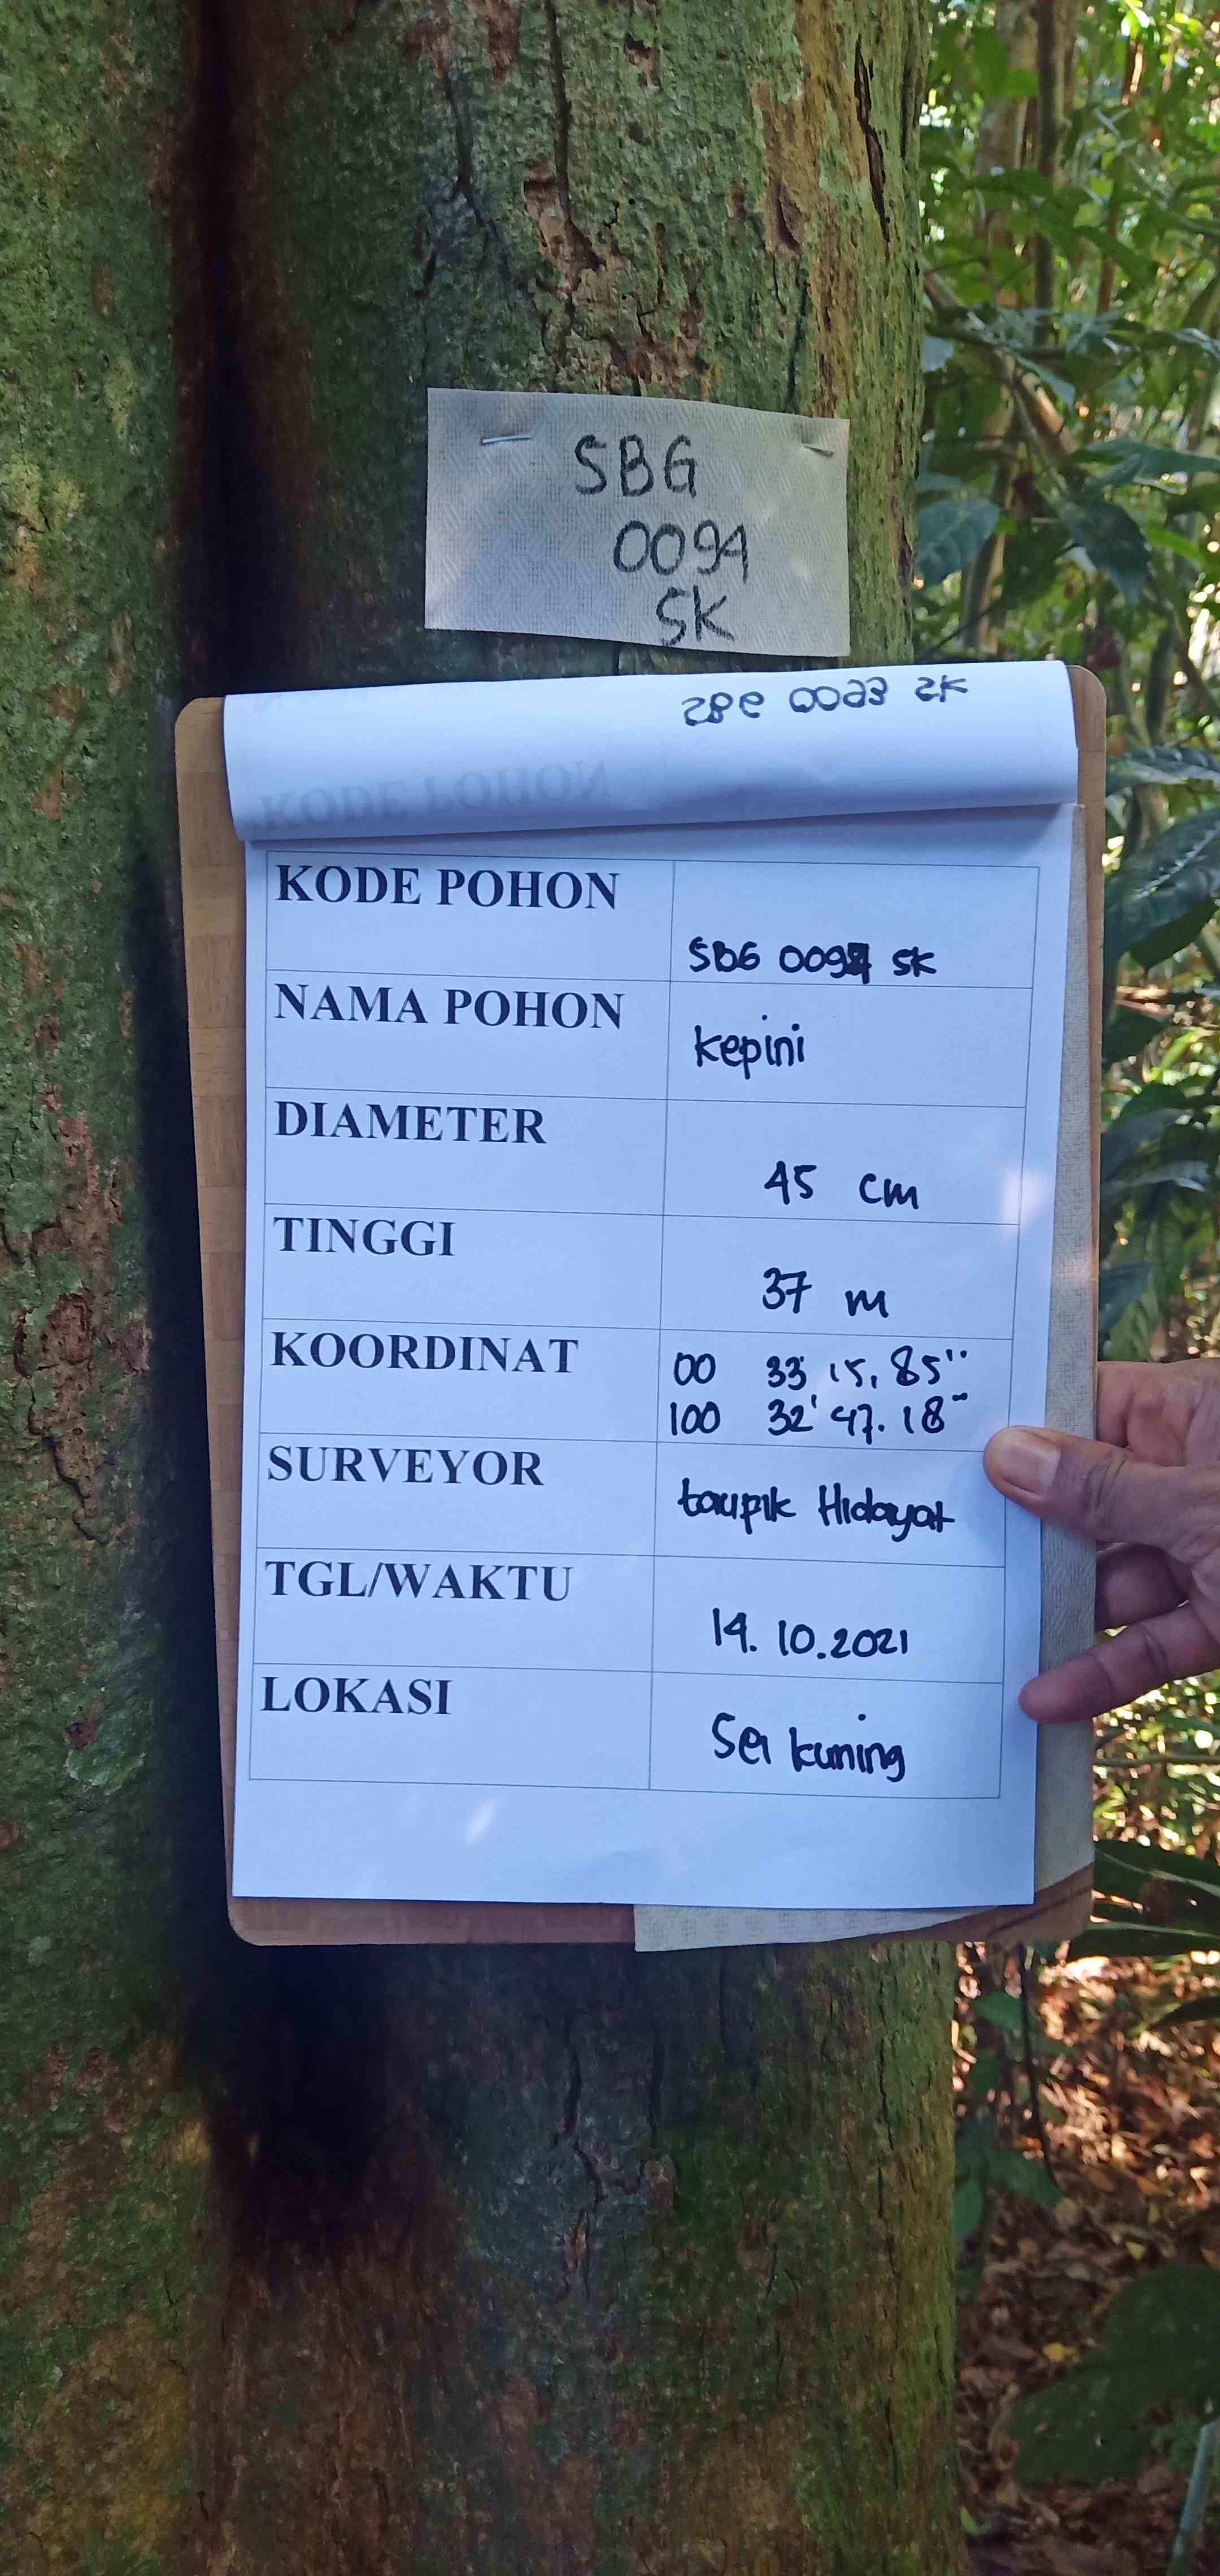 SBG
0094
SK
SBG 0093 SK
KODE POHON
SBG 0094 SK
NAMA POHON
kepini
DIAMETER
45 cm
TINGGI
37 m
KOORDINAT
00 33' 15,85"
100 32' 47.18"
SURVEYOR
taupik Hidayat
TGL/WAKTU
14.10.2021
LOKASI
Sei kuning